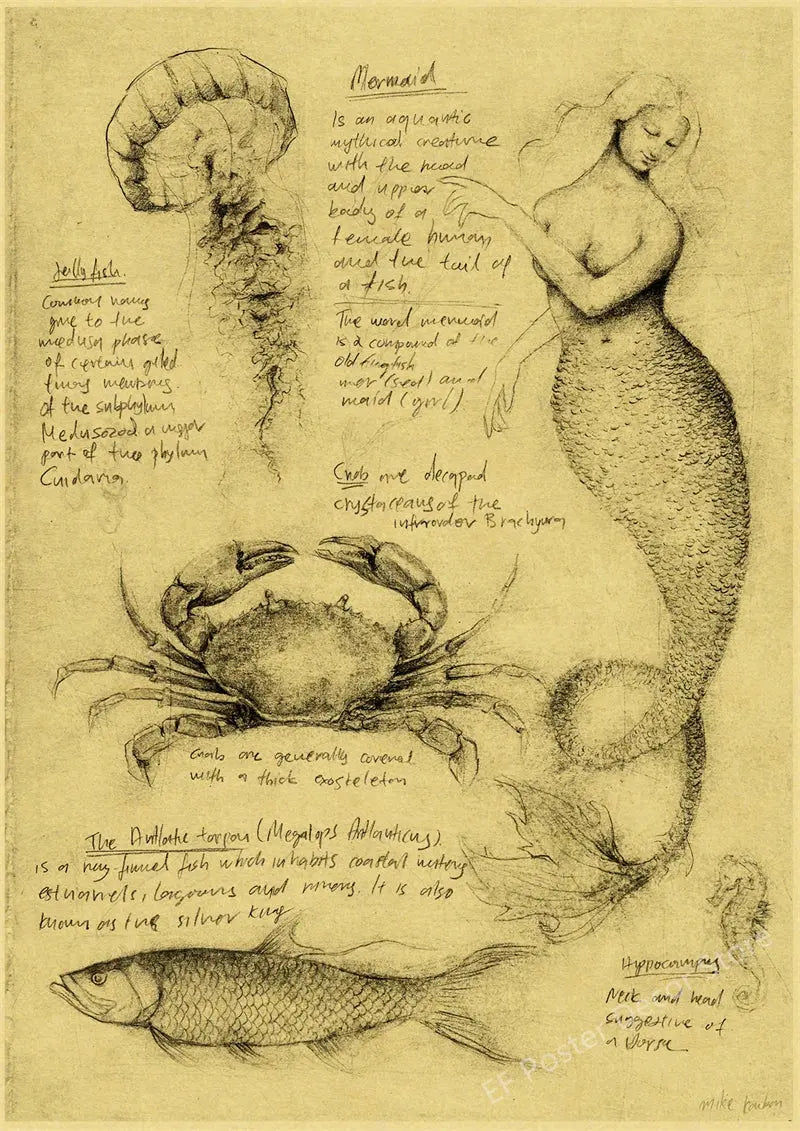 Mermaid
Is an aquantic
mythical creature
with the head
and upper
body of a
female human
and the tail of
a fish.
The word mermaid
is a compound of the
Old English
mer (sea) and
maid (girl)
Jelly fish.
Common name
give to the
medusa phase
of certain
members.
of the subphylum
Medusozoa a major
part of the phylum
Cnidaria.
Crab are decapod
crystaceans of the
infraorder Brachyura
Crab are generally covered
with a thick exosteleton
The Atlantic tarpon (Megalops Atlanticus).
is a ray finned fish which inhabits coastal waters
estuaries, lagoons and rivers. It is also
known as the silver king
Hippocampus
Neck and head
suggestive of
a Horse
EF Poster
mike